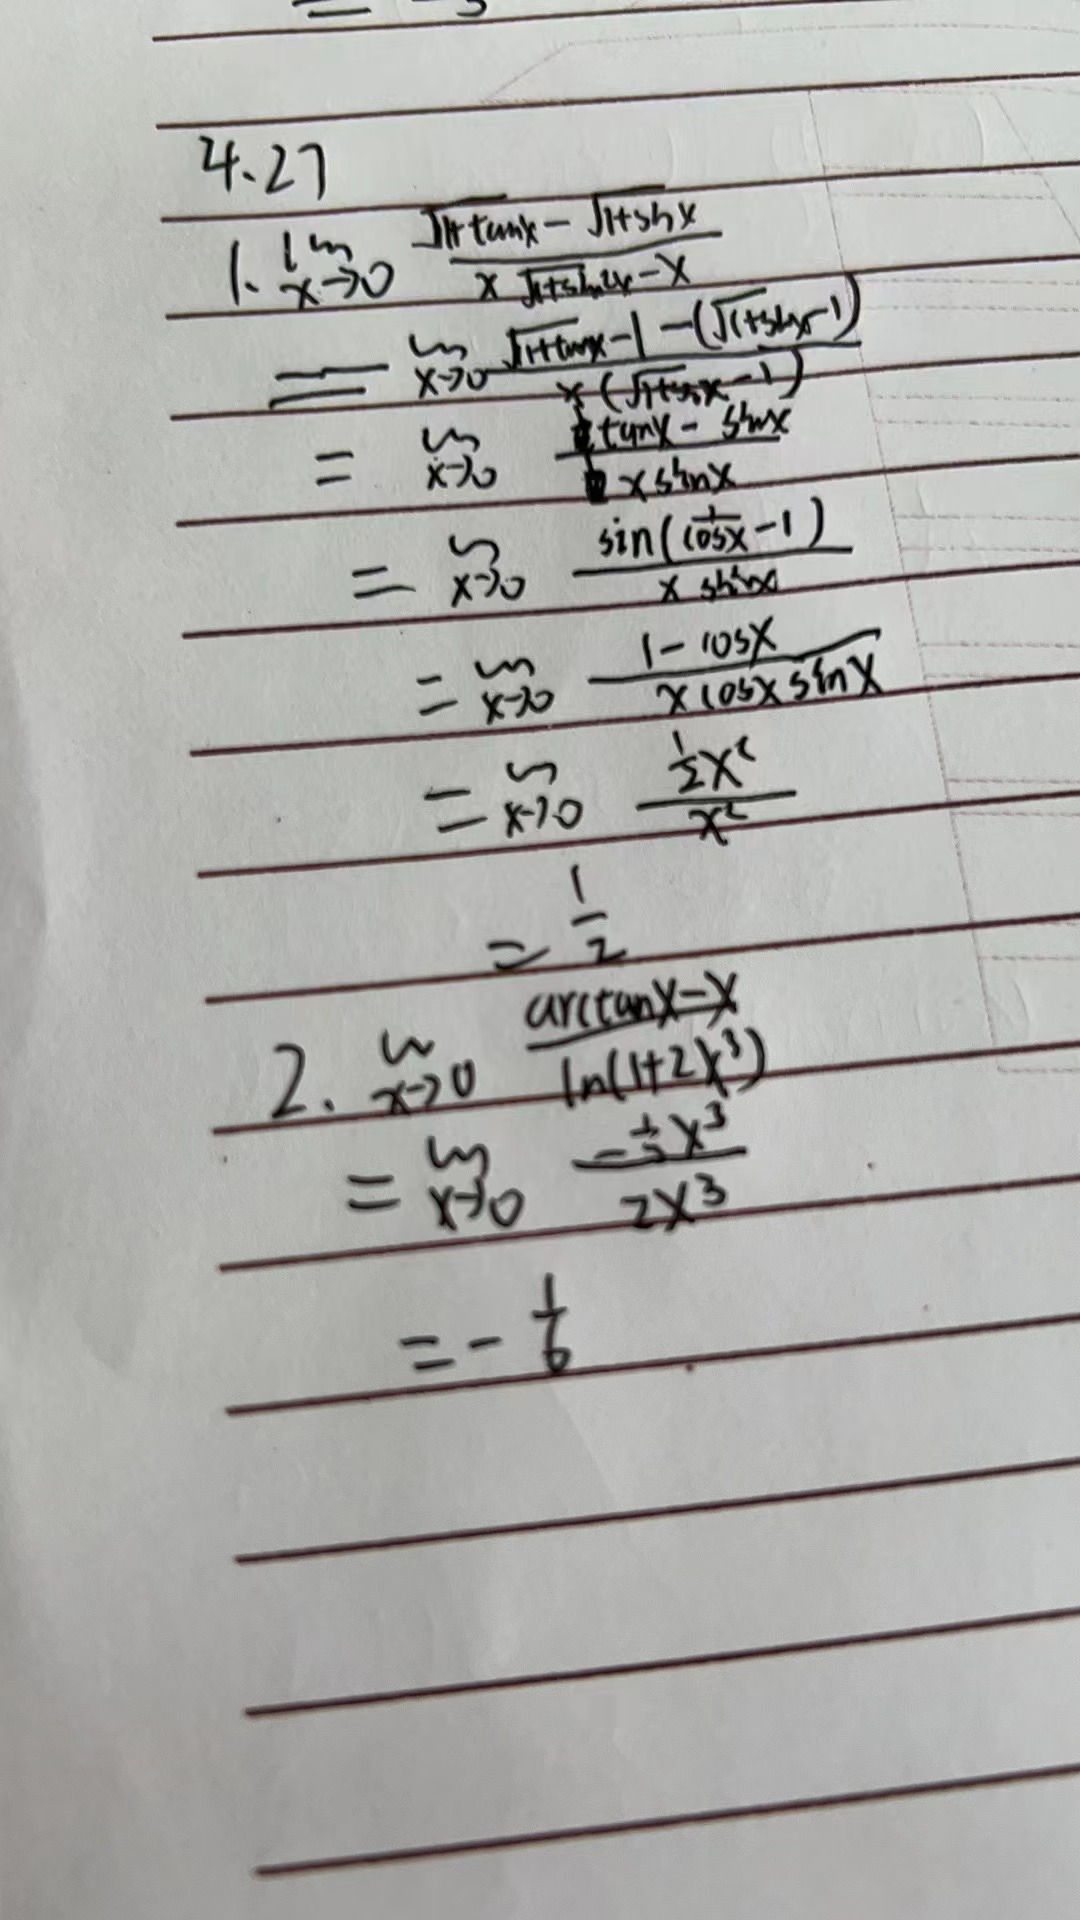 4.27
1. lim x→0 (√1+tanx − √1+sinx) / (x √1+sin²x − x)
= lim x→0 (√1+tanx − 1 − (√1+sinx − 1)) / (x (√1+sin²x − 1))
= lim x→0 (tanx − sinx) / (x sinx)
= lim x→0 sin(1/cosx − 1) / (x sinx)
= lim x→0 (1 − cosx) / (x cosx sinx)
= lim x→0 (1/2 x²) / x²
= 1/2
2. lim x→0 (arctanx − x) / ln(1+2x³)
= lim x→0 (−1/3 x³) / 2x³
= − 1/6